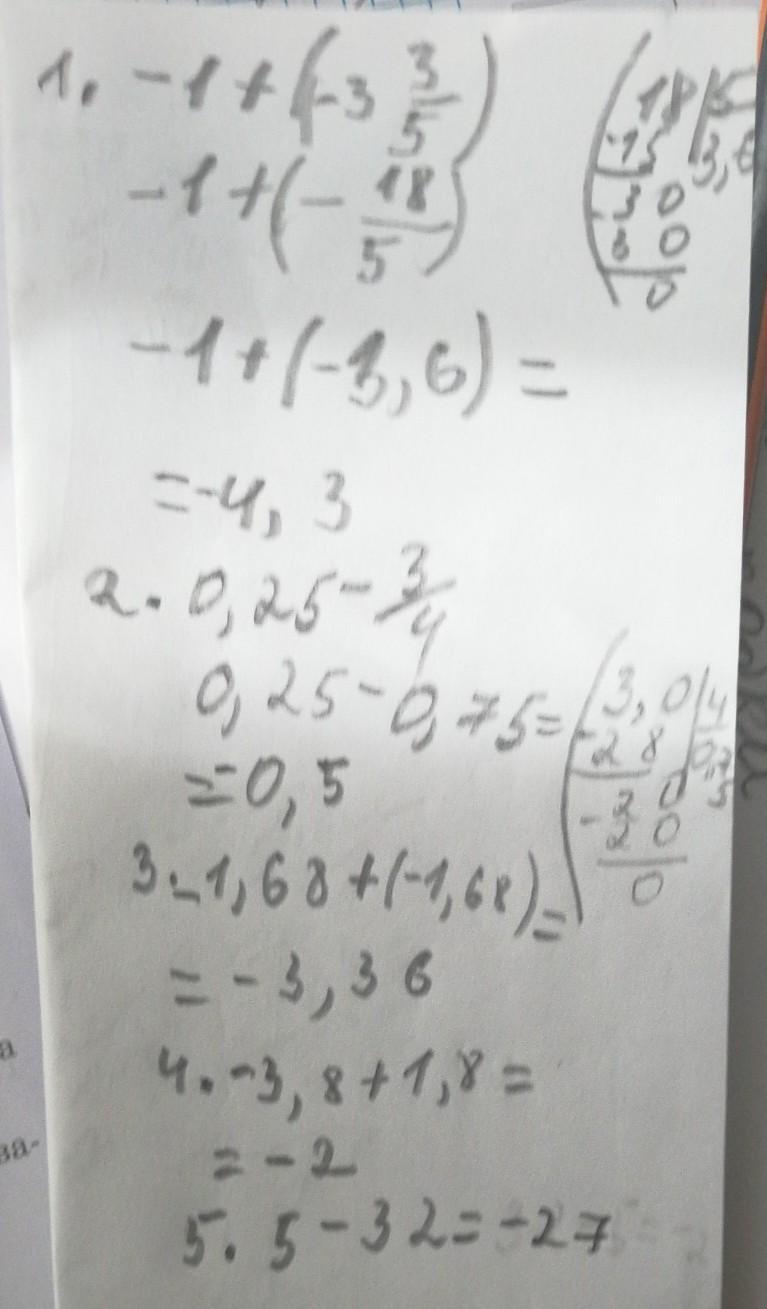 1. -1+(-3 3/5)
-1+(-18/5)
(18|5
-15 3,6
-30
30
0
-1+(-3,6)=
=-4,3
2. 0,25-3/4
0,25-0,75=
(3,0|4
-28 0,75
-20
20
0
=-0,5
3. -1,68+(-1,68)=
=-3,36
4. -3,8+1,8=
=-2
5. 5-32=-27
а
ва-